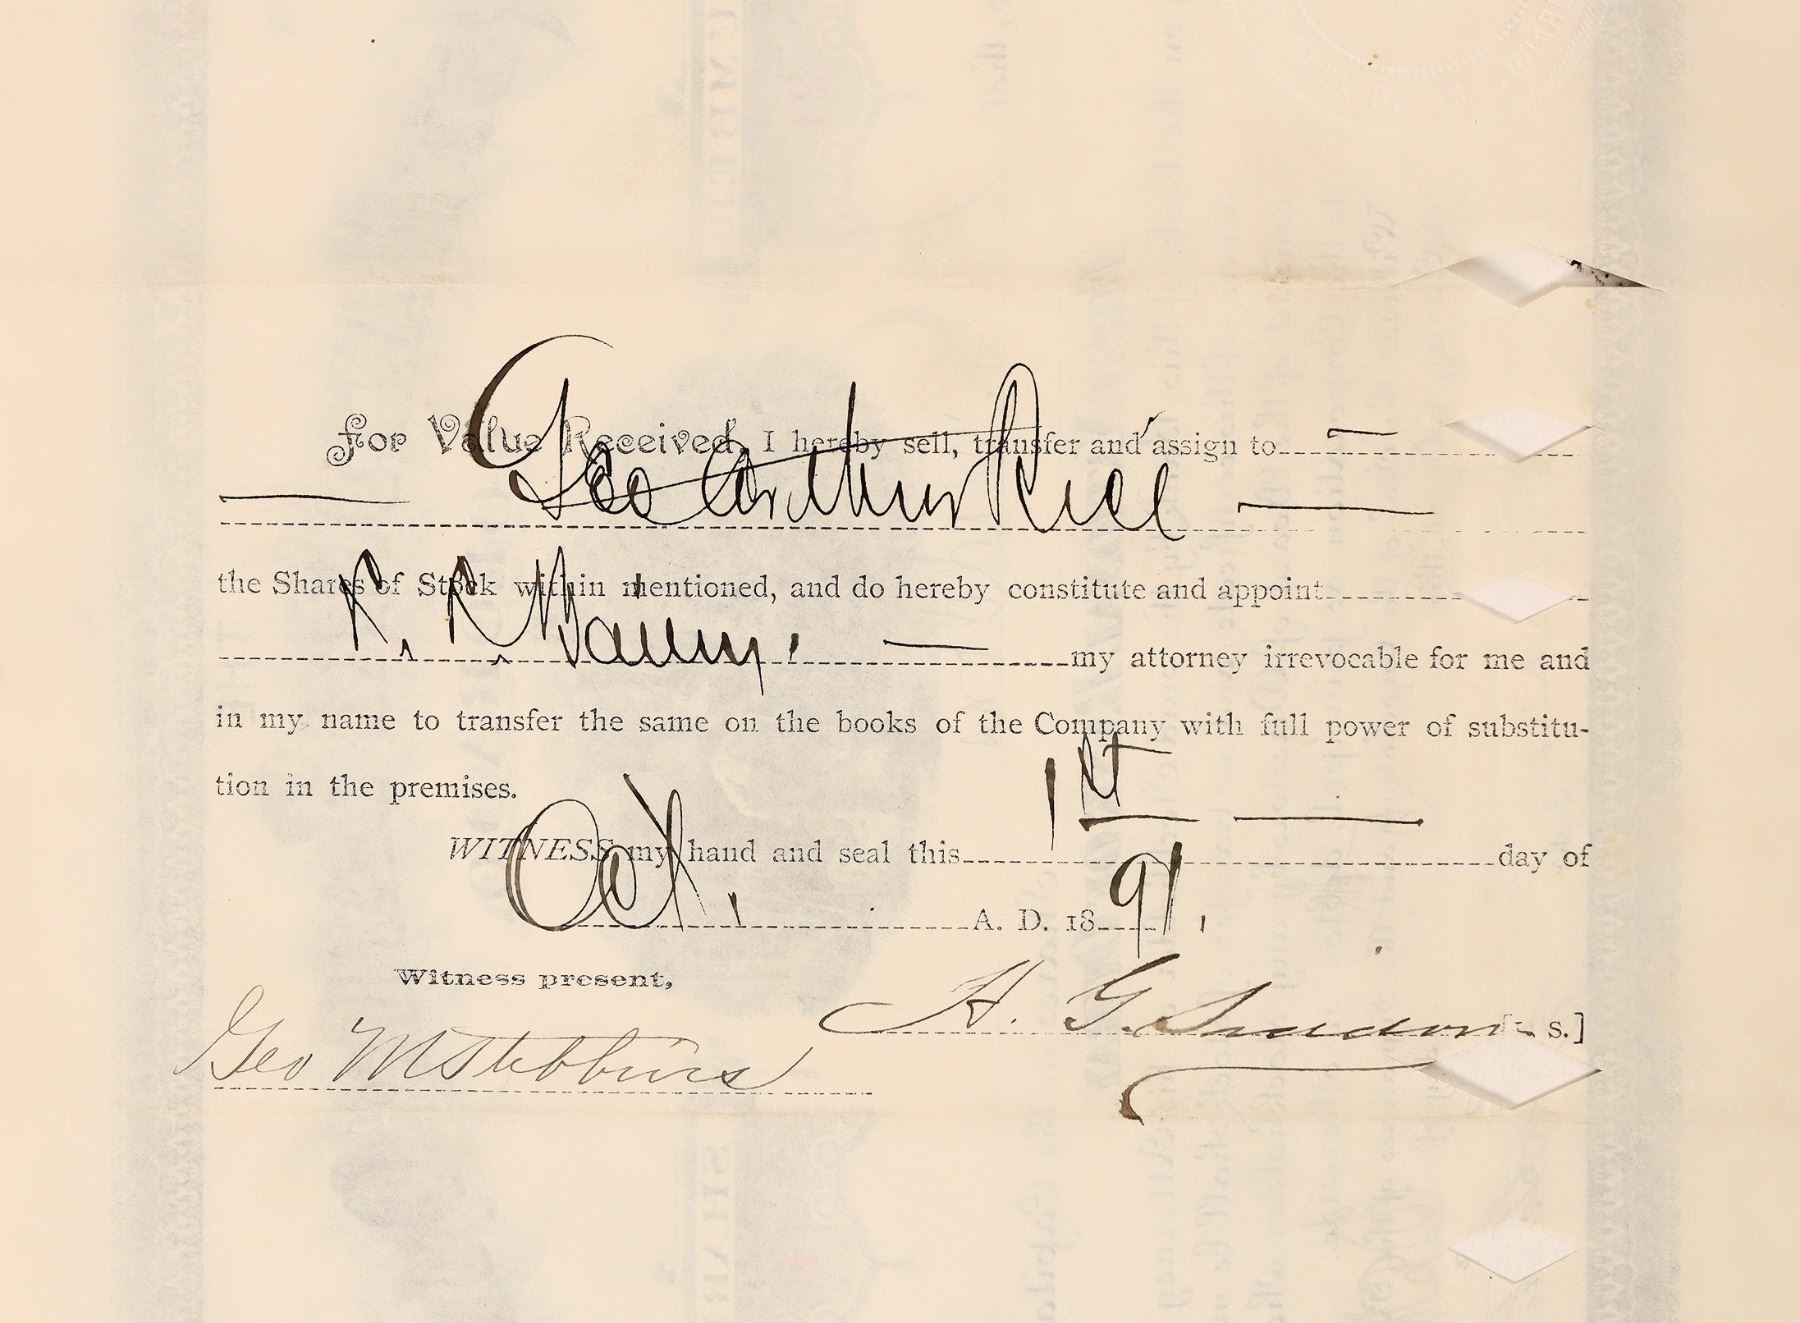 For Value Received, I hereby sell, transfer and assign to
Geo Arthur Rice
the Shares of Stock within mentioned, and do hereby constitute and appoint
R. R. my attorney irrevocable for me and
in my name to transfer the same on the books of the Company with full power of substitu-
tion in the premises.
WITNESS my hand and seal this 1st day of
Oct. A. D. 1891.
Witness present,
H. G. S.]
Geo M Stebbins